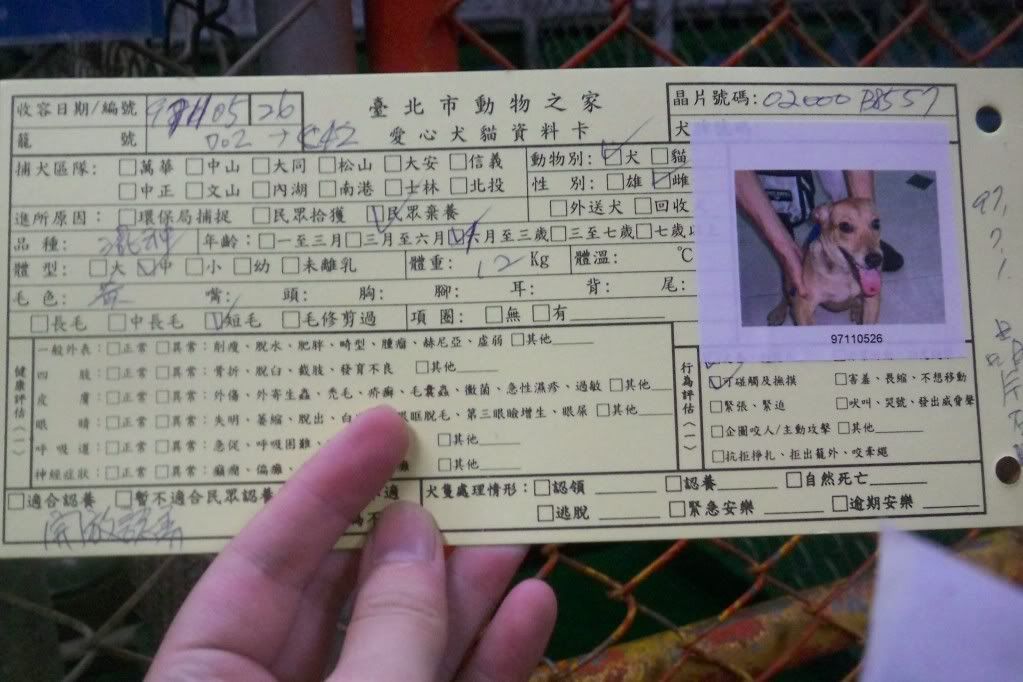 收容日期/編號 97 11 05 26
臺北市動物之家
晶片號碼: 02000 P8557
籠 號 D02 → C42
愛心犬貓資料卡
犬
捕犬區隊: □萬華 □中山 □大同 □松山 □大安 □信義
□中正 □文山 □內湖 □南港 □士林 □北投
動物別: ☑犬 □貓
性 別: □雄 ☑雌
□外送犬 □回收
進所原因: □環保局捕捉 □民眾拾獲 ☑民眾棄養
品 種: 混種 年齡: □一至三月 □三月至六月 ☑六月至三歲 □三至七歲 □七歲以
體 型: □大 ☑中 □小 □幼 □未離乳 體重: 12 Kg 體溫: ℃
毛 色: 黃 嘴: 頭: 胸: 腳: 耳: 背: 尾:
□長毛 □中長毛 ☑短毛 □毛修剪過 項 圈: □無 □有
97110526
健康評估(一)
一般外表: □正常 □異常: 削瘦、脫水、肥胖、畸型、腫瘤、赫尼亞、虛弱 □其他
四 肢: □正常 □異常: 骨折、脫臼、截肢、發育不良 □其他
皮 膚: □正常 □異常: 外傷、外寄生蟲、禿毛、疥癬、毛囊蟲、黴菌、急性濕疹、過敏 □其他
眼 睛: □正常 □異常: 失明、萎縮、脫出、白 眼眶脫毛、第三眼瞼增生、眼屎 □其他
呼 吸 道: □正常 □異常: 急促、呼吸困難、 □其他
神經症狀: □正常 □異常: 癲癇、偏癱、 □其他
行為評估(一)
☑可碰觸及撫摸 □害羞、畏縮、不想移動
□緊張、緊迫 □吠叫、哭號、發出威脅聲
□企圖咬人/主動攻擊 □其他
□抗拒掙扎、拒出籠外、咬牽繩
□適合認養 □暫不適合民眾認養 適
開放認養
為不
犬隻處理情形: □認領 □認養 □自然死亡
□逃脫 □緊急安樂 □逾期安樂